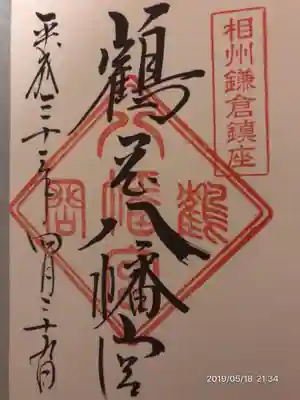 相州鎌倉鎮座
鶴岡八幡宮
鶴岡八幡宮
平成三十一年四月三十日
2019/05/18 21:34